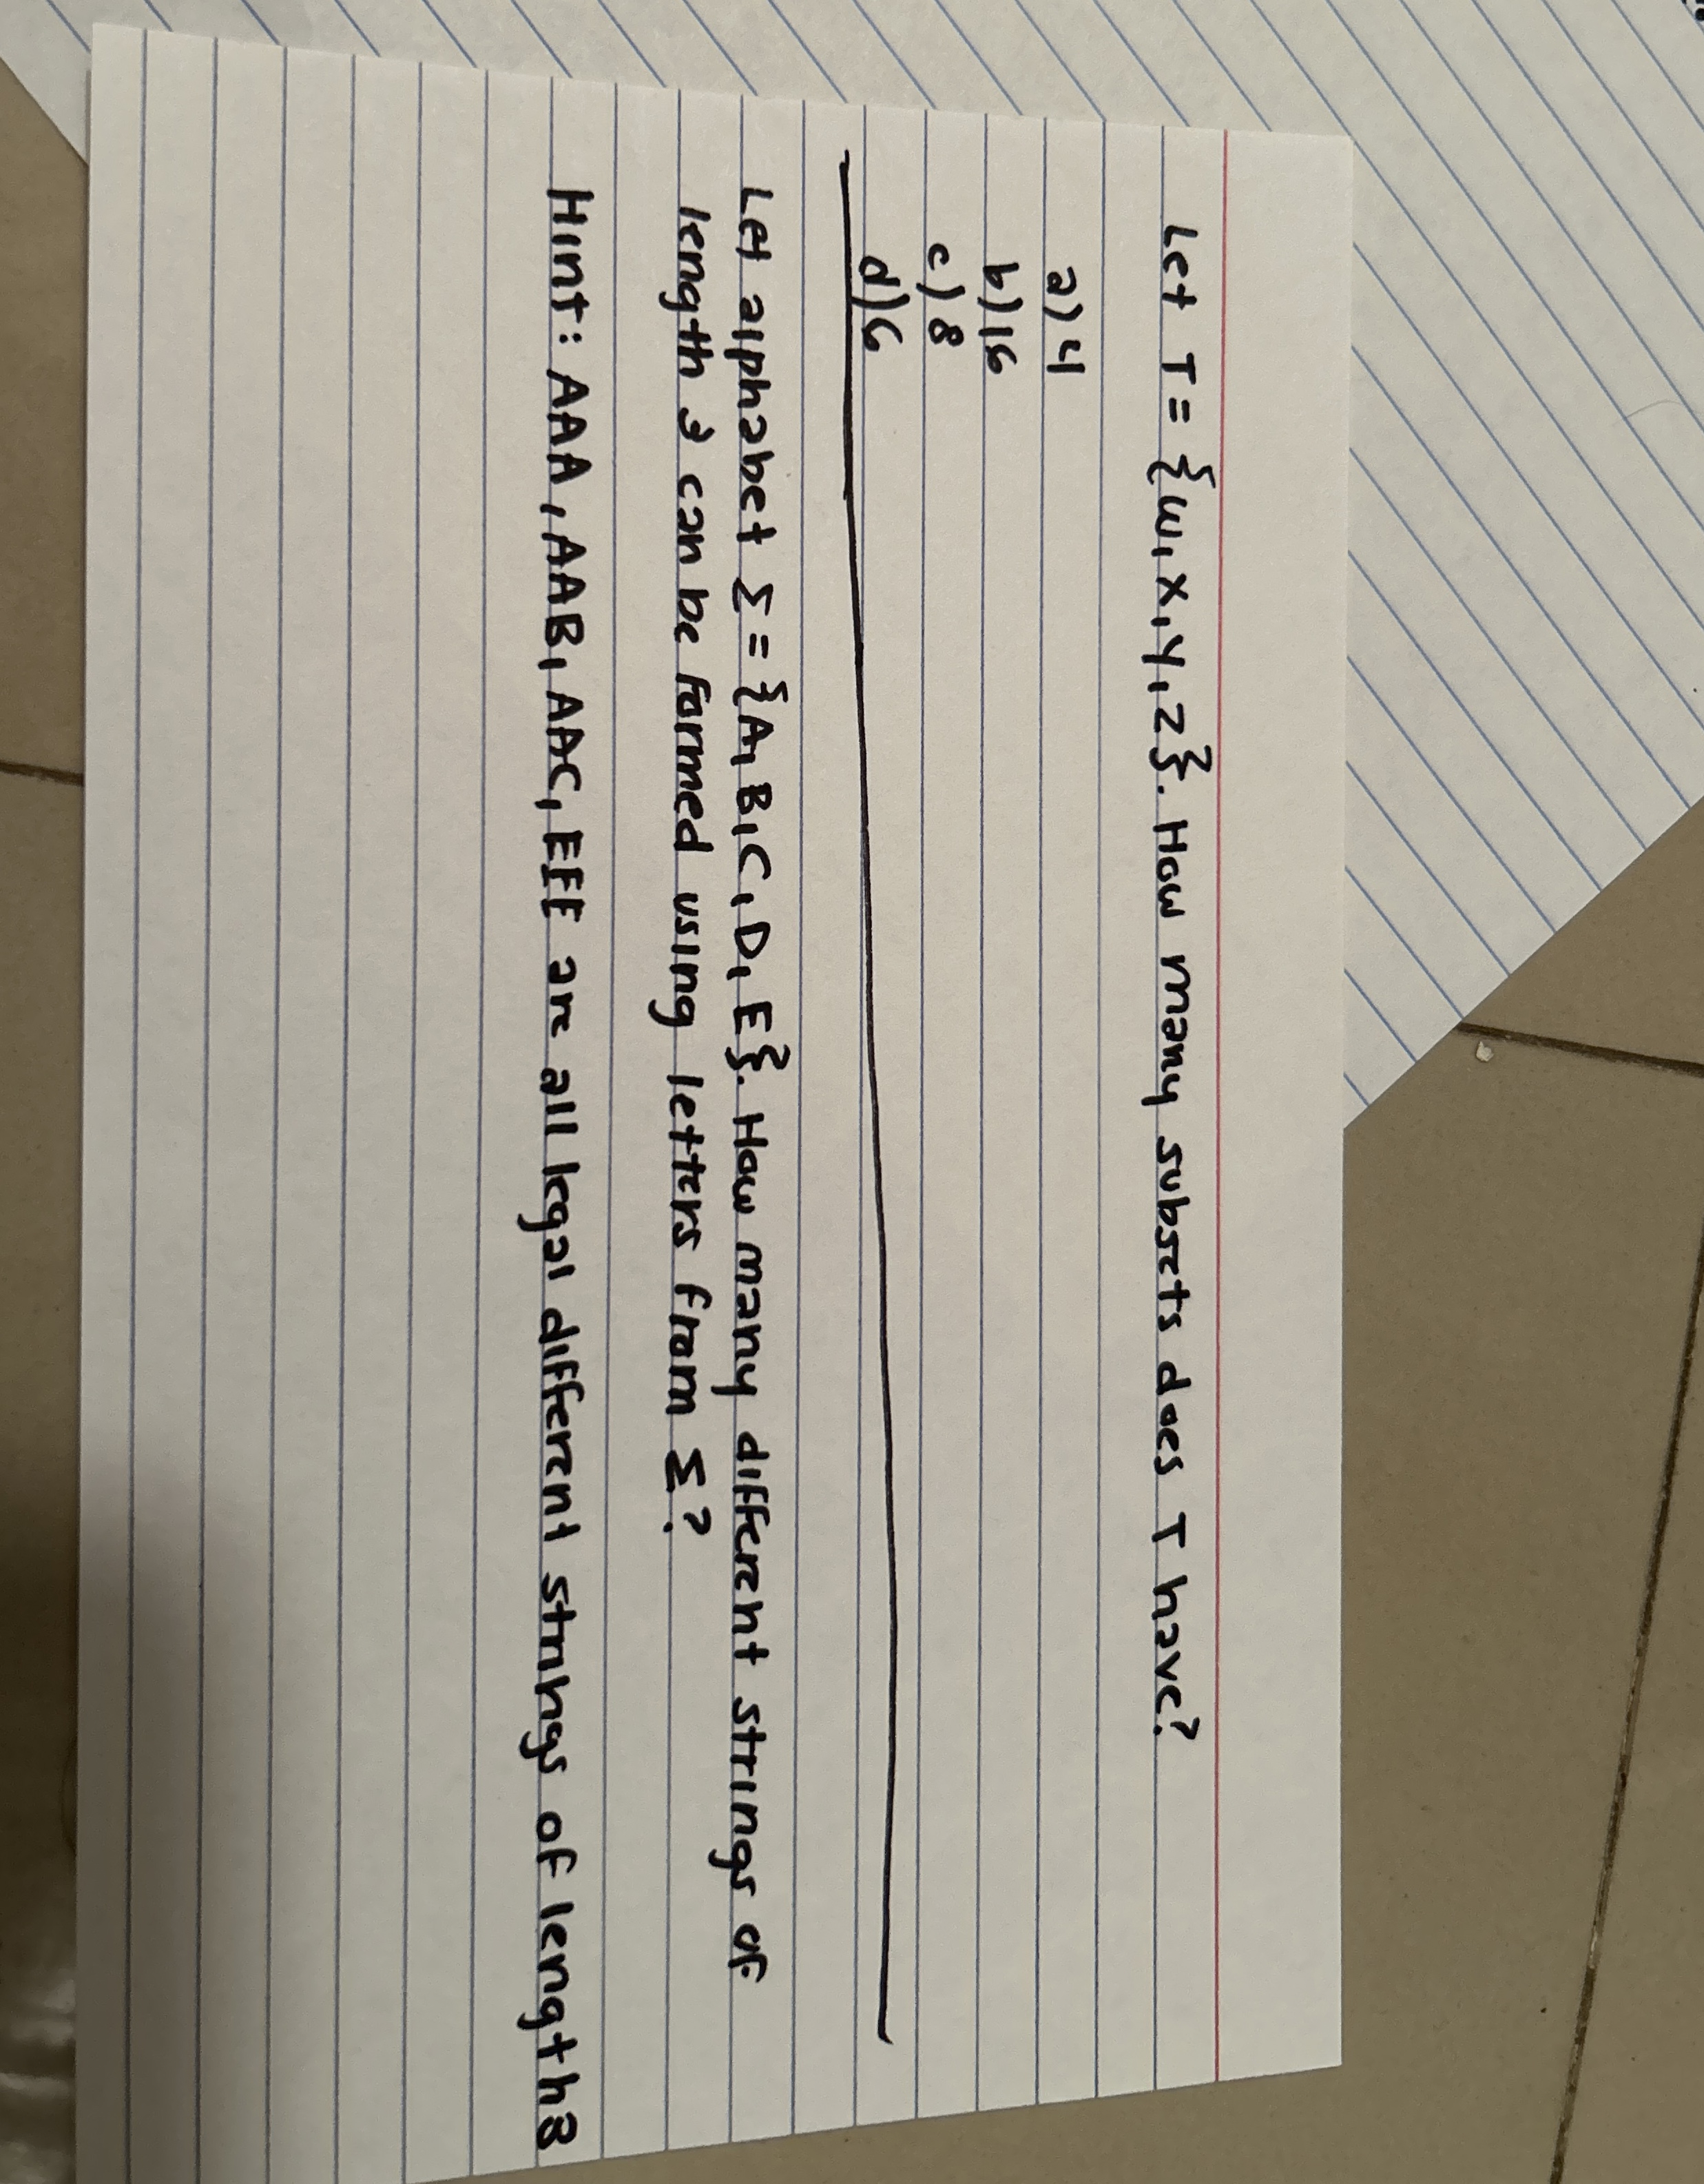 Let T = {w, x, y, z}. How many subsets does T have?
a) 4
b) 16
c) 8
d) 6
Let alphabet Σ = {A, B, C, D, E}. How many different strings of
length 3 can be formed using letters from Σ?
Hint: AAA, AAB, AAC, EEE are all legal different strings of length 3